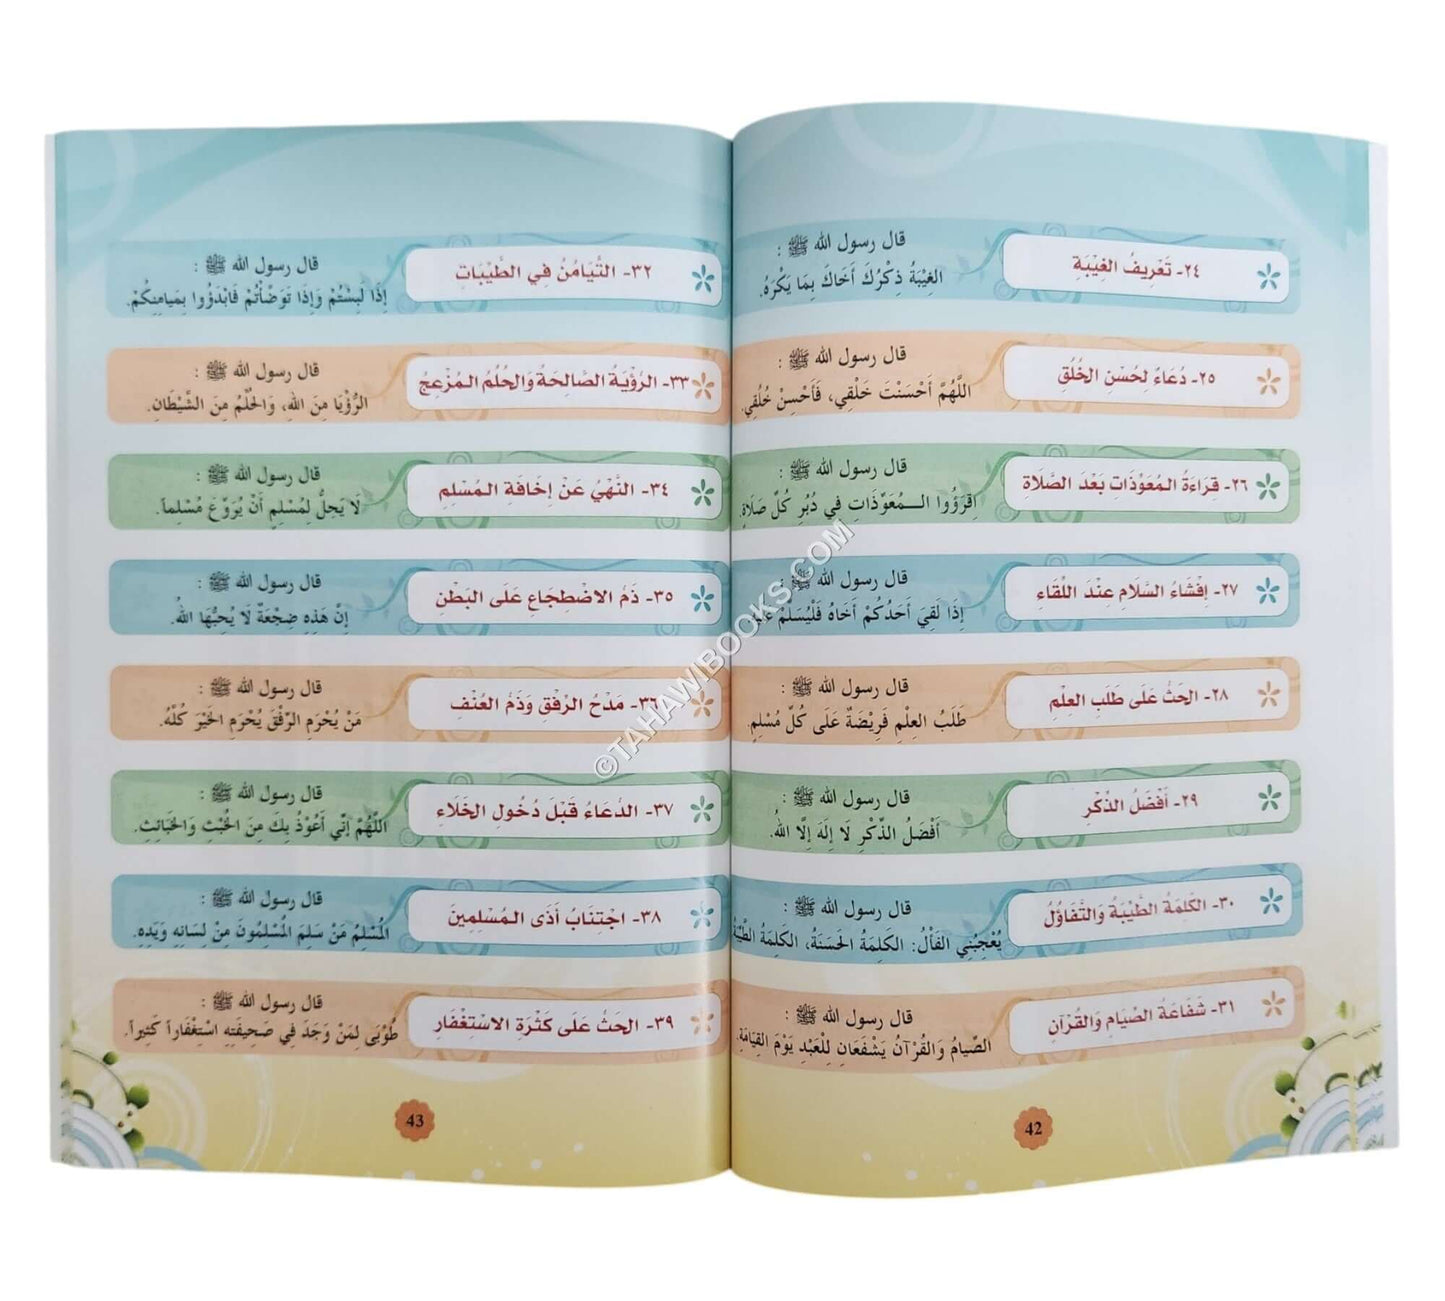 ٢٤- تَعْرِيفُ الغِيْبَةِ
قال رسول الله ﷺ :
الغِيْبَةُ ذِكْرُكَ أَخَاكَ بِمَا يَكْرَهُ.
٢٥- دُعَاءٌ لِحُسْنِ الخُلُقِ
قال رسول الله ﷺ :
اللَّهُمَّ أَحْسَنْتَ خَلْقِي، فَأَحْسِنْ خُلُقِي.
٢٦- قِرَاءَةُ المُعَوِّذَاتِ بَعْدَ الصَّلَاةِ
قال رسول الله ﷺ :
اِقرَؤُوا الـمُعَوِّذَاتِ في دُبُرِ كُلِّ صَلَاةٍ.
٢٧- إِفْشَاءُ السَّلَامِ عِنْدَ اللِّقَاءِ
قال رسول الله ﷺ :
إِذَا لَقِيَ أَحَدُكُمْ أَخَاهُ فَلْيُسَلِّمْ
٢٨- الحَثُّ عَلَى طَلَبِ العِلْمِ
قال رسول الله ﷺ :
طَلَبُ العِلْمِ فَرِيْضَةٌ عَلَى كُلِّ مُسْلِمٍ.
٢٩- أَفْضَلُ الذِّكْرِ
قال رسول الله ﷺ :
أَفْضَلُ الذِّكْرِ لَا إِلَهَ إِلَّا اللهُ.
٣٠- الكَلِمَةُ الطَّيِّبَةُ وَالتَّفَاؤُلُ
قال رسول الله ﷺ :
يُعْجِبُنِي الفَأْلُ: الكَلِمَةُ الحَسَنَةُ، الكَلِمَةُ
٣١- شَفَاعَةُ الصِّيَامِ وَالقُرْآنِ
قال رسول الله ﷺ :
الصِّيامُ وَالقُرْآنُ يَشْفَعَانِ لِلْعَبْدِ يَوْمَ القِيَامَةِ.
42
٣٢- التَّيَامُنُ فِي الطَّيِّبَاتِ
قال رسول الله ﷺ :
إِذَا لَبِسْتُمْ وَإِذَا تَوَضَّأْتُمْ فَابْدَؤُوا بِمَيامِنِكُمْ.
٣٣- الرُّؤْيَةُ الصَّالِحَةُ وَالحُلُمُ الـمُزْعِجُ
قال رسول الله ﷺ :
الرُّؤْيَا مِنَ اللهِ، وَالحُلْمُ مِنَ الشَّيْطَانِ.
٣٤- النَّهْيُ عَنْ إِخَافَةِ الـمُسْلِمِ
قال رسول الله ﷺ :
لَا يَحِلُّ لمُسْلِمٍ أَنْ يُرَوِّعَ مُسْلِماً.
٣٥- ذَمُّ الاضْطِجَاعِ عَلَى البَطْنِ
قال رسول الله ﷺ :
إِنَّ هَذِهِ ضِجْعَةٌ لَا يُحِبُّهَا اللهُ.
٣٦- مَدْحُ الرِّفْقِ وَذَمُّ العُنْفِ
قال رسول الله ﷺ :
مَنْ يُحْرَمِ الرِّفْقَ يُحْرَمِ الخَيْرَ كُلَّهُ.
٣٧- الدُّعَاءُ قَبْلَ دُخُولِ الخَلَاءِ
قال رسول الله ﷺ :
اللَّهُمَّ إِنِّي أَعُوْذُ بِكَ مِنَ الخُبْثِ وَالخَبَائِثِ.
٣٨- اجْتِنَابُ أَذَى الـمُسْلِمِينَ
قال رسول الله ﷺ :
المُسْلِمُ مَنْ سَلِمَ المُسْلِمُونَ مِنْ لِسَانِهِ وَيَدِهِ.
٣٩- الحَثُّ عَلَى كَثْرَةِ الاسْتِغْفَارِ
قال رسول الله ﷺ :
طُوْبَى لِمَنْ وَجَدَ فِي صَحِيفَتِهِ اسْتِغْفَاراً كَثِيراً.
43
©TAHAWIBOOKS.COM